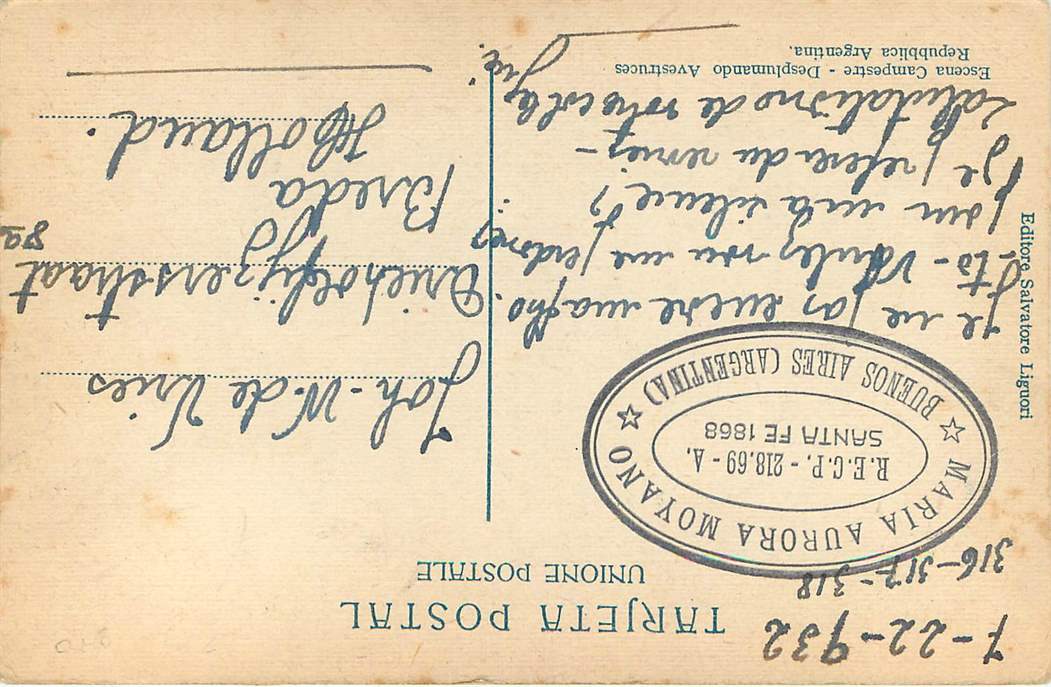 7-22-932
316-317-318
TARJETA POSTAL
UNIONE POSTALE
MARIA AURORA MOYANO
R.E.C.P. - 218.69 - A.
SANTA FE 1868
BUENOS AIRES (ARGENTINA)
Editore Salvatore Liguori
Je ne pas encore ma pho-
-to- Voulez vou me perdoner
pour ma silence?
Je prefere du
Salutations de votre collegue.
Joh-W. de Vries
Driehoefijzersstraat
8a
Breda
Holland.
Escena Campestre - Desplumando Avestruces
Repubblica Argentina.